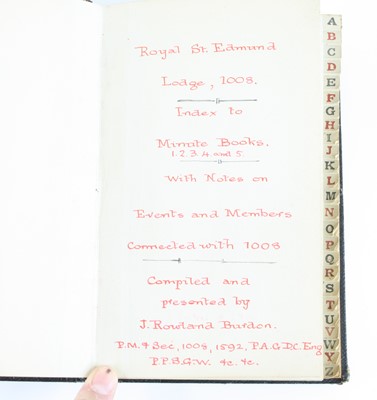 Royal St. Edmund
Lodge, 1008.
Index to
Minute Books.
1. 2. 3. 4. and 5.
With Notes on
Events and Members
Connected with 1008
Compiled and
presented by
J. Rowland Burdon.
P.M. & Sec, 1008, 1592, P.A.G.D.C. Eng
P.P.S.G.W. &c. &c.
A
B
C
D
E
F
G
H
I
J
K
L
M
N
O
P
Q
R
S
T
U
V
W
Y
Z